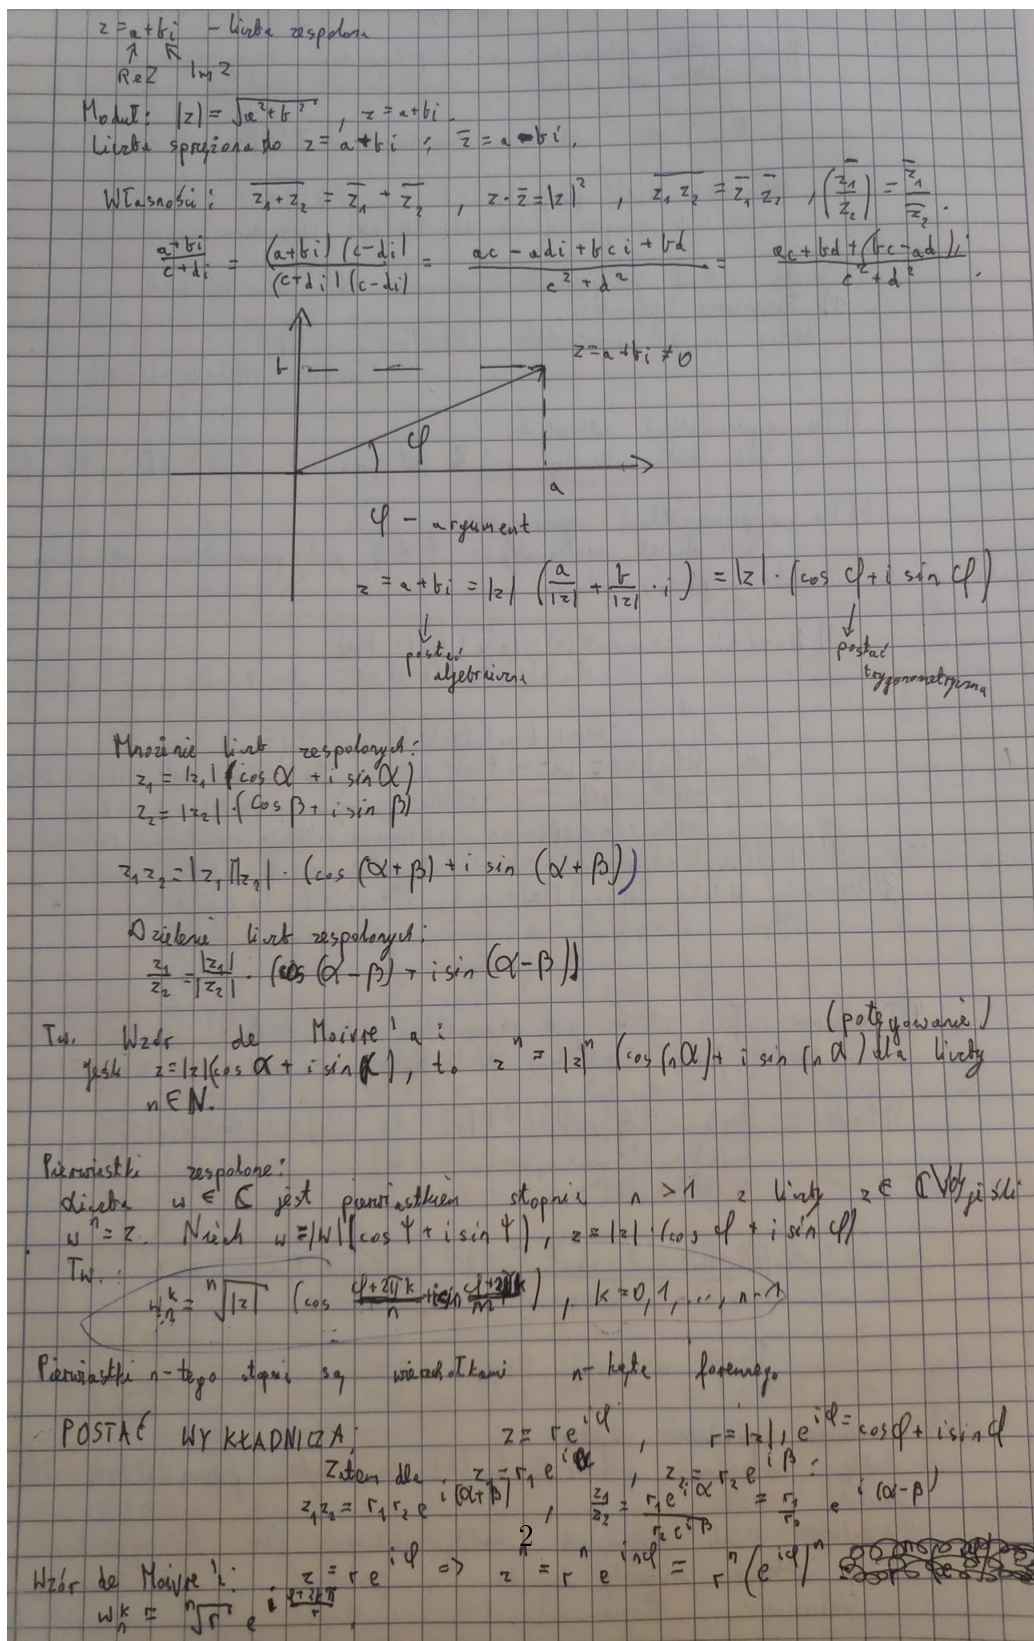 z = a + bi – liczba zespolona
Re Z Im Z
Moduł: |z| = √(a² + b²), z = a + bi.
Liczba sprzężona do z = a + bi : z̅ = a - bi.
Własności: \overline{z₁ + z₂} = \overline{z₁} + \overline{z₂}, z · z̅ = |z|², \overline{z₁ z₂} = \overline{z₁} \overline{z₂}, \overline{(z₁/z₂)} = \overline{z₁}/\overline{z₂}.
(a+bi)/(c+di) = (a+bi)(c-di)/(c+di)(c-di) = (ac - adi + bci + bd)/(c² + d²) = (ac + bd + (bc - ad)i)/(c² + d²).
b z = a + bi ≠ 0
φ
a
φ – argument
z = a + bi = |z| (a/|z| + b/|z| · i) = |z| · (cos φ + i sin φ)
postać algebraiczna postać trygonometryczna
Mnożenie liczb zespolonych:
z₁ = |z₁| (cos α + i sin α)
z₂ = |z₂| · (cos β + i sin β)
z₁z₂ = |z₁||z₂| · (cos (α + β) + i sin (α + β))
Dzielenie liczb zespolonych:
z₁/z₂ = |z₁|/|z₂| · (cos (α – β) + i sin (α – β))
(potęgowanie)
Tw. Wzór de Moivre'a :
Jeśli z = |z|(cos α + i sin α), to zⁿ = |z|ⁿ (cos (nα) + i sin (nα)) dla liczby
n ∈ N.
Pierwiastki zespolone:
Liczba w ∈ ℂ jest pierwiastkiem stopnia n > 1 z liczby z ∈ ℂ\{0}, jeśli
wⁿ = z. Niech w = |w|(cos ψ + i sin ψ), z = |z| · (cos φ + i sin φ)
Tw.
wₙᵏ = ⁿ√|z| (cos (φ+2πk)/n + i sin (φ+2πk)/n), k = 0, 1, ..., n-1
Pierwiastki n-tego stopnia są wierzchołkami n-kąta foremnego
POSTAĆ WYKŁADNICZA: z = re^{iφ}, r = |z|, e^{iφ} = cos φ + i sin φ
Zatem dla z₁ = r₁ e^{iα}, z₂ = r₂ e^{iβ} :
z₁z₂ = r₁ r₂ e^{i(α+β)}, z₁/z₂ = r₁e^{iα}/r₂e^{iβ} = r₁/r₂ e^{i(α-β)}
2
Wzór de Moivre'a: z = r e^{iφ} => zⁿ = rⁿ e^{inφ} = rⁿ (e^{iφ})ⁿ
wₙᵏ = ⁿ√r e^{i (φ+2kπ)/n}